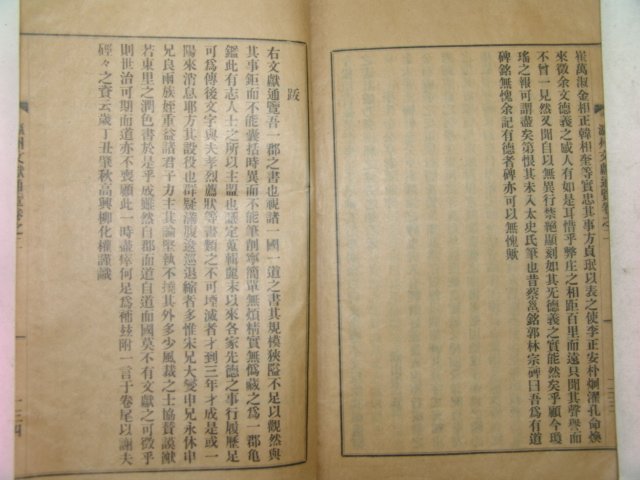 崔萬淑金相正韓相奎等實忠其事方貞珉以表之使李正安朴炯濯孔命煥
來徵余文德義之感人有如是耳惜乎弊庄之相距百里而遠只聞其聲譽而
不曾一見然又聞自以無異行禁絕顯刻如其无德義之實能然矣乎顧今瓊
瑤之報可謂盡矣第恨其未入太史氏筆也昔蔡邕銘郭林宗碑曰吾爲有道
碑銘無愧余記有德者碑亦可以無愧歟
跋
右文獻通覽吾一郡之書也視諸一國一道之書其規模狹隘不足以觀然與
其事鉅而不能囊括時異而不能筆削寧簡單無煩精實無僞藏之爲一郡龜
鑑此有志人士之所以主盟也歷定蒐輯麗末以來各家先德之事行履歷足
可爲傳後文字與夫孝烈薦狀等書類之不可堙滅者才到三年才成是或一
陽來消息耶方其設役也群疑滿腹逡巡退縮者多惟宋兄大燮申兄永休申
兄良雨族姪重益諸君子力主其論堅執不撓其外多少風裁之士協賛謨猷
若東里之潤色書於是乎成雖然自郡而道自道而國莫不有文獻之可徵乎
則世治可期而道亦不喪顧此一時盡瘁何足爲補玆附一言于卷尾以謝夫
硜々之責云歲丁丑肇秋高興柳化權謹識
一三四